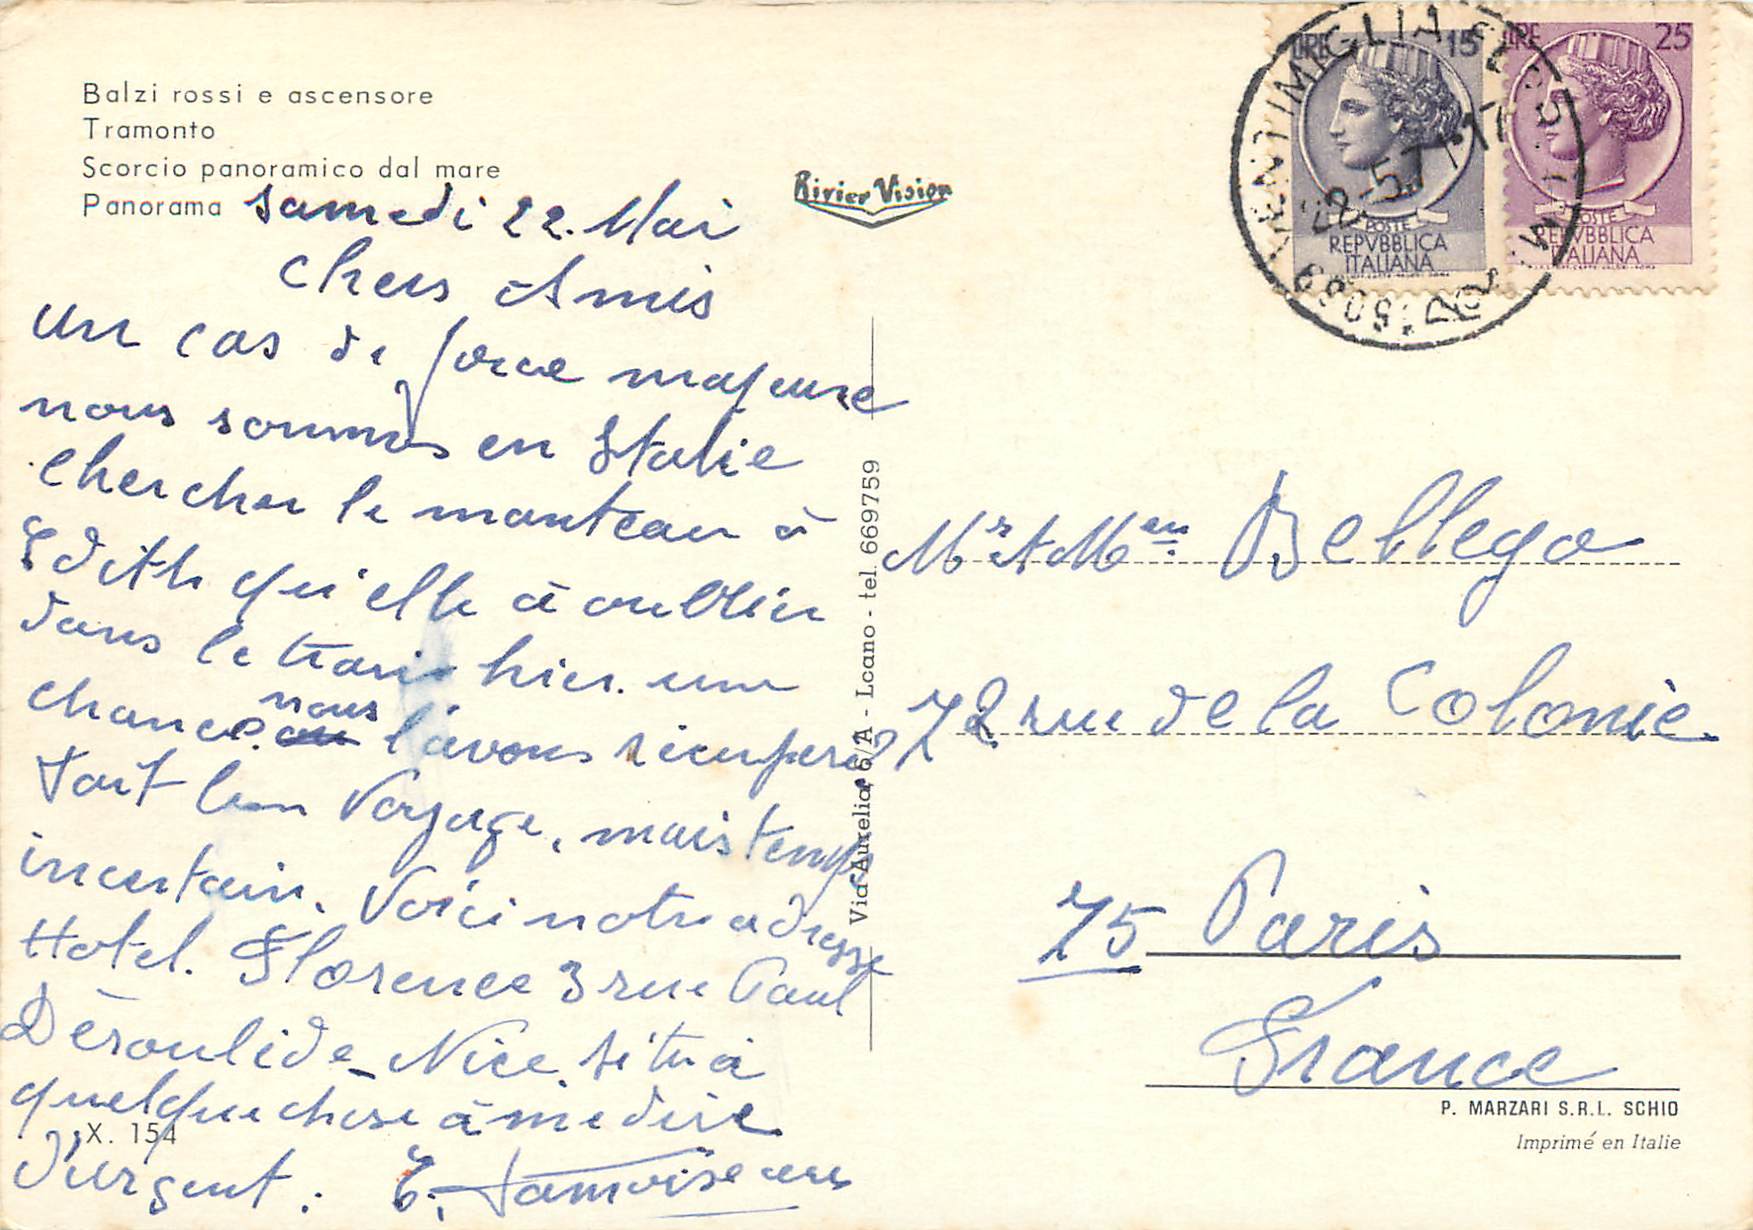 Balzi rossi e ascensore
Tramonto
Scorcio panoramico dal mare
Panorama
Rivier Vision
samedi 22. Mai
Chers Amis
un cas de force majeure
nous sommes en Italie
chercher le manteau à
Edith qu'elle à oublier
dans le train hier. une
chance. nous l'avons récupéré
Fait bon Voyage, mais temps
incertain. Voici notre adresse
Hotel. Florence 3 rue Paul
Déroulède - Nice. si tu a
quelque chose à me dire
d'urgent. E.
X. 154
Via Aurelia, 6/A - Lcano - tel. 669759
LIRE 15
POSTE
REPVBBLICA
ITALIANA
LIRE 25
POSTE
REPVBBLICA
ITALIANA
VENTIMIGLIA
22-5.71
Mr et Men Bellego
72 rue de la Colonie
75 Paris
France
P. MARZARI S.R.L. SCHIO
Imprimé en Italie